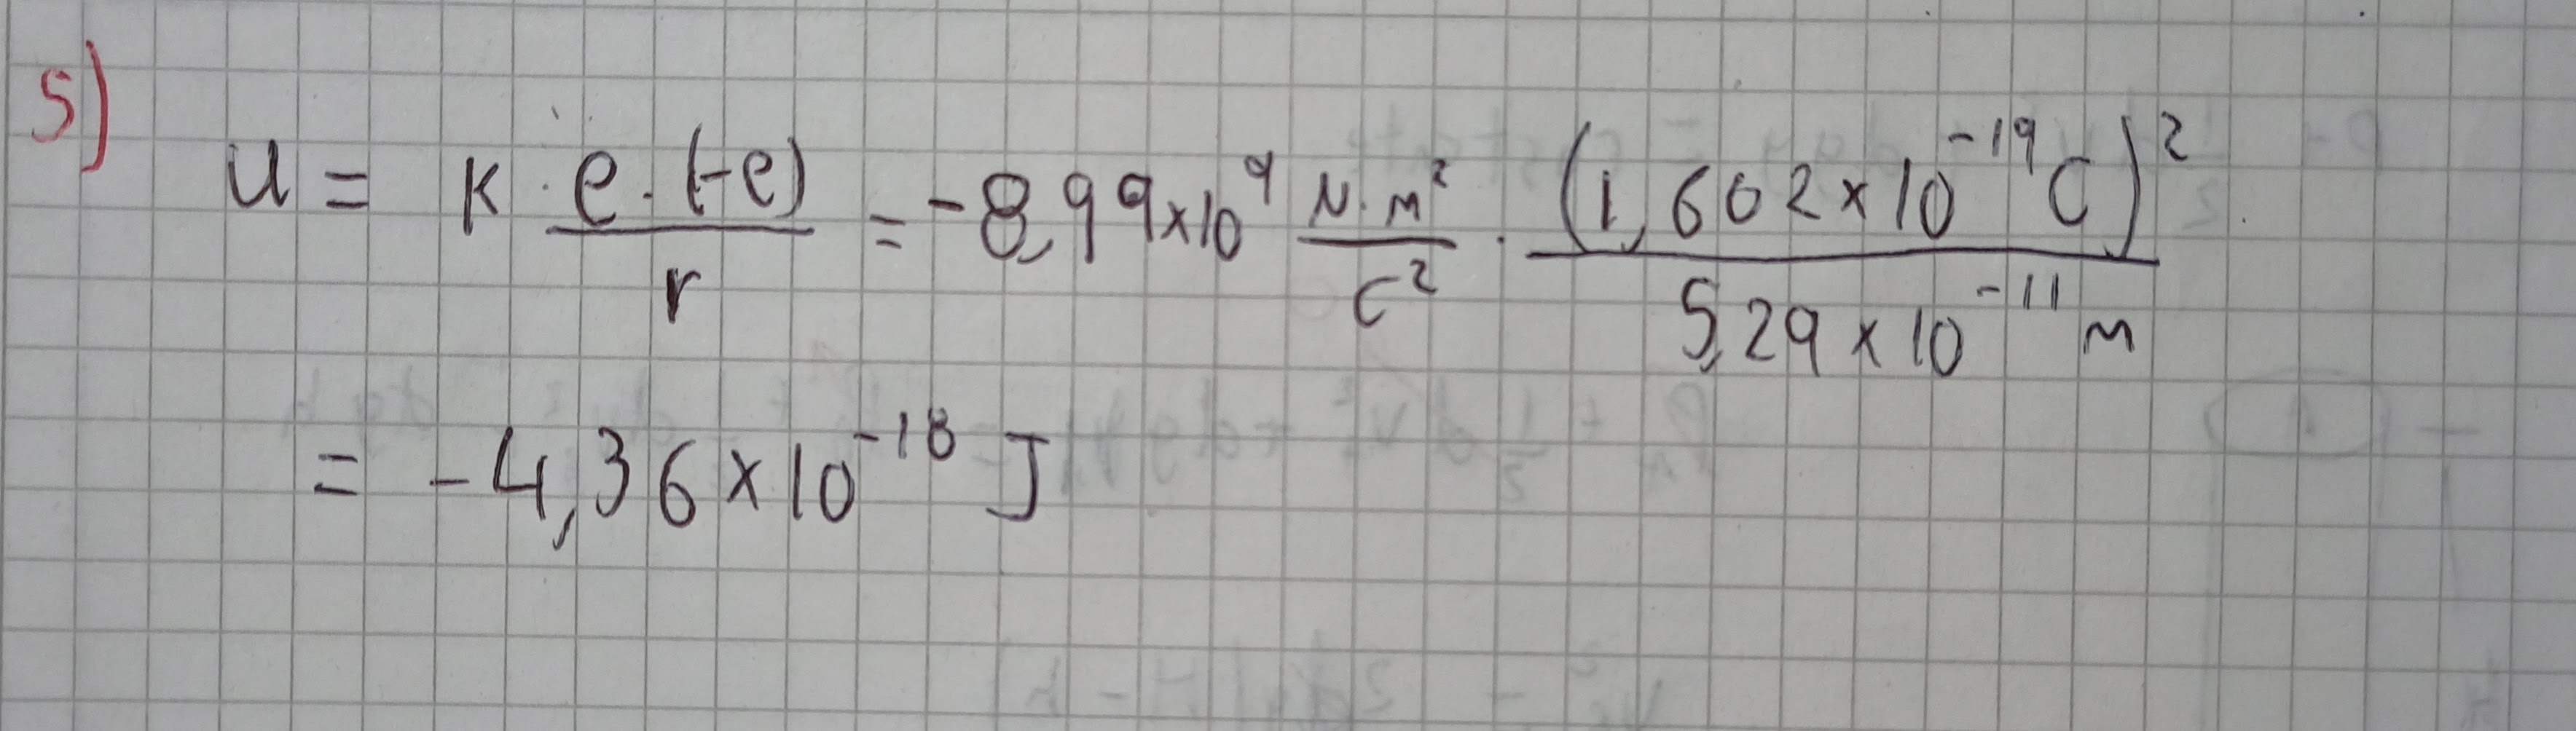 5)
U = K · e·(-e)/r = -8,99×10⁹ N·m²/C² · (1,602×10⁻¹⁹C)²/5,29×10⁻¹¹ m
= -4,36×10⁻¹⁸ J